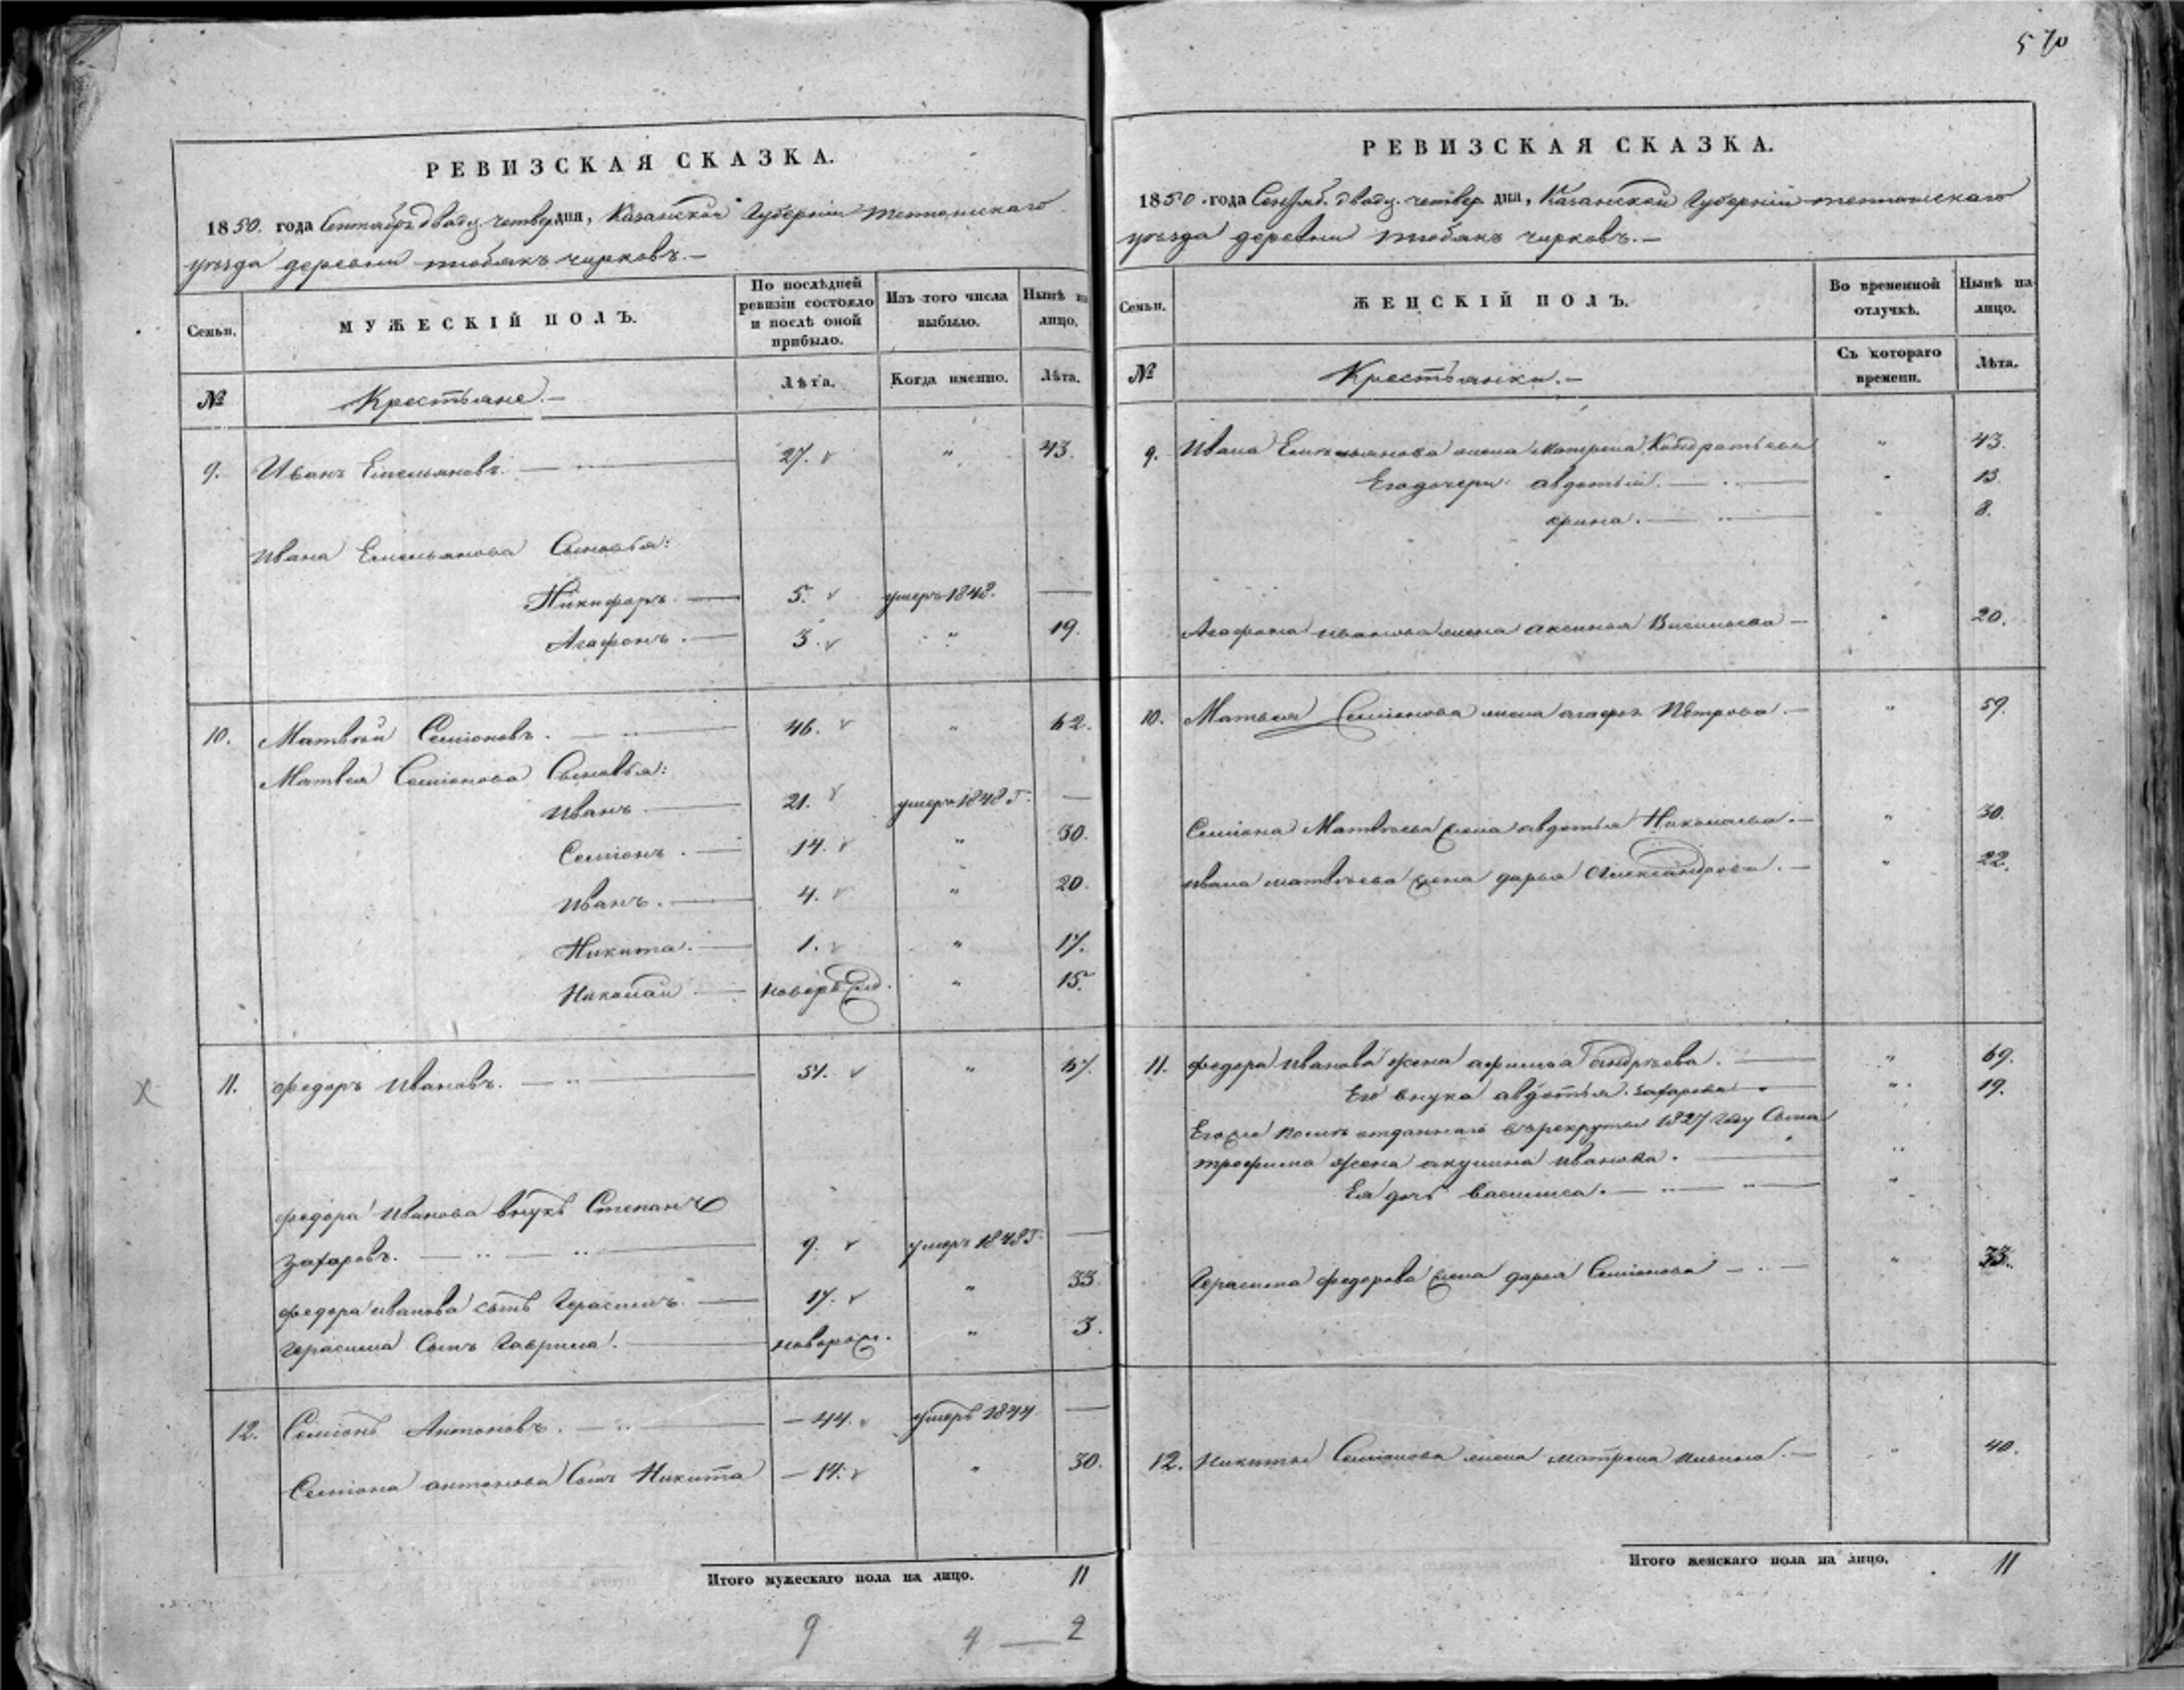 570
РЕВИЗСКАЯ СКАЗКА.
1850. года Сентября двадц. четвер. дня, Казанской Губерніи тетюшскаго
уѣзда деревни тюбякъ чирковъ. —
Семьи.
МУЖЕСКІЙ ПОЛЪ.
По послѣдней ревизіи состояло и послѣ оной прибыло.
Изъ того числа выбыло.
Нынѣ на лицо.
№
Крестьяне. —
Лѣта.
Когда именно.
Лѣта.
9. Иванъ Емельяновъ. — 27. " 43.
Ивана Емельянова Сыновья:
Никифоръ. — 5. умеръ 1848. —
Агафонъ. — 3. " 19.
10. Матвѣй Семіоновъ. — 46. " 62.
Матвея Семіонова Сыновья:
Иванъ — 21. умеръ 1848 г. —
Семіонъ. — 14. " 30.
Иванъ. — 4. " 20.
Никита. — 1. " 17.
Николай — новорожд. " 15.
11. федоръ Ивановъ. — 51. " 67.
федора Иванова внукъ Степанъ
Захаровъ. — 9. умеръ 1848 г. —
федора иванова сынъ Герасимъ. — 17. " 33.
герасима Сынъ Гаврила. — новорож. " 3.
12. Семіонъ Антоновъ. — 44. умеръ 1844. —
Семіона антонова Сынъ Никита — 14. " 30.
Итого мужескаго пола на лицо. 11
9 4 — 2
РЕВИЗСКАЯ СКАЗКА.
1850. года Сентяб. двадц. четвер. дня, Казанской Губерніи тетюшскаго
уѣзда деревни тюбякъ чирковъ. —
Семьи.
ЖЕНСКІЙ ПОЛЪ.
Во временной отлучкѣ.
Нынѣ на лицо.
№
Крестьянки. —
Съ котораго времени.
Лѣта.
9. Ивана Емельянова жена матрена Кондратьева " 43.
Его дочери: авдотья. — " 13.
орина. — " 8.
Агафона иванова жена аксинья Васильева — " 20.
10. Матвея Семіонова жена агафья Петрова. — " 59.
Семіона Матвѣева жена авдотья Николаева. — " 30.
ивана матвѣева жена дарья Александрова. — " 22.
11. федора иванова жена афимья андрѣева. — " 69.
Его внука авдотья. захарова " 19.
Его же после отданнаго въ рекруты 1827 году Сына
трофима жена акулина иванова. — "
Ея дочь василиса. — "
Герасима федорова жена дарья Семіонова — " 33.
12. Никиты Семіонова жена матрена ильина. — " 40.
Итого женскаго пола на лицо. 11